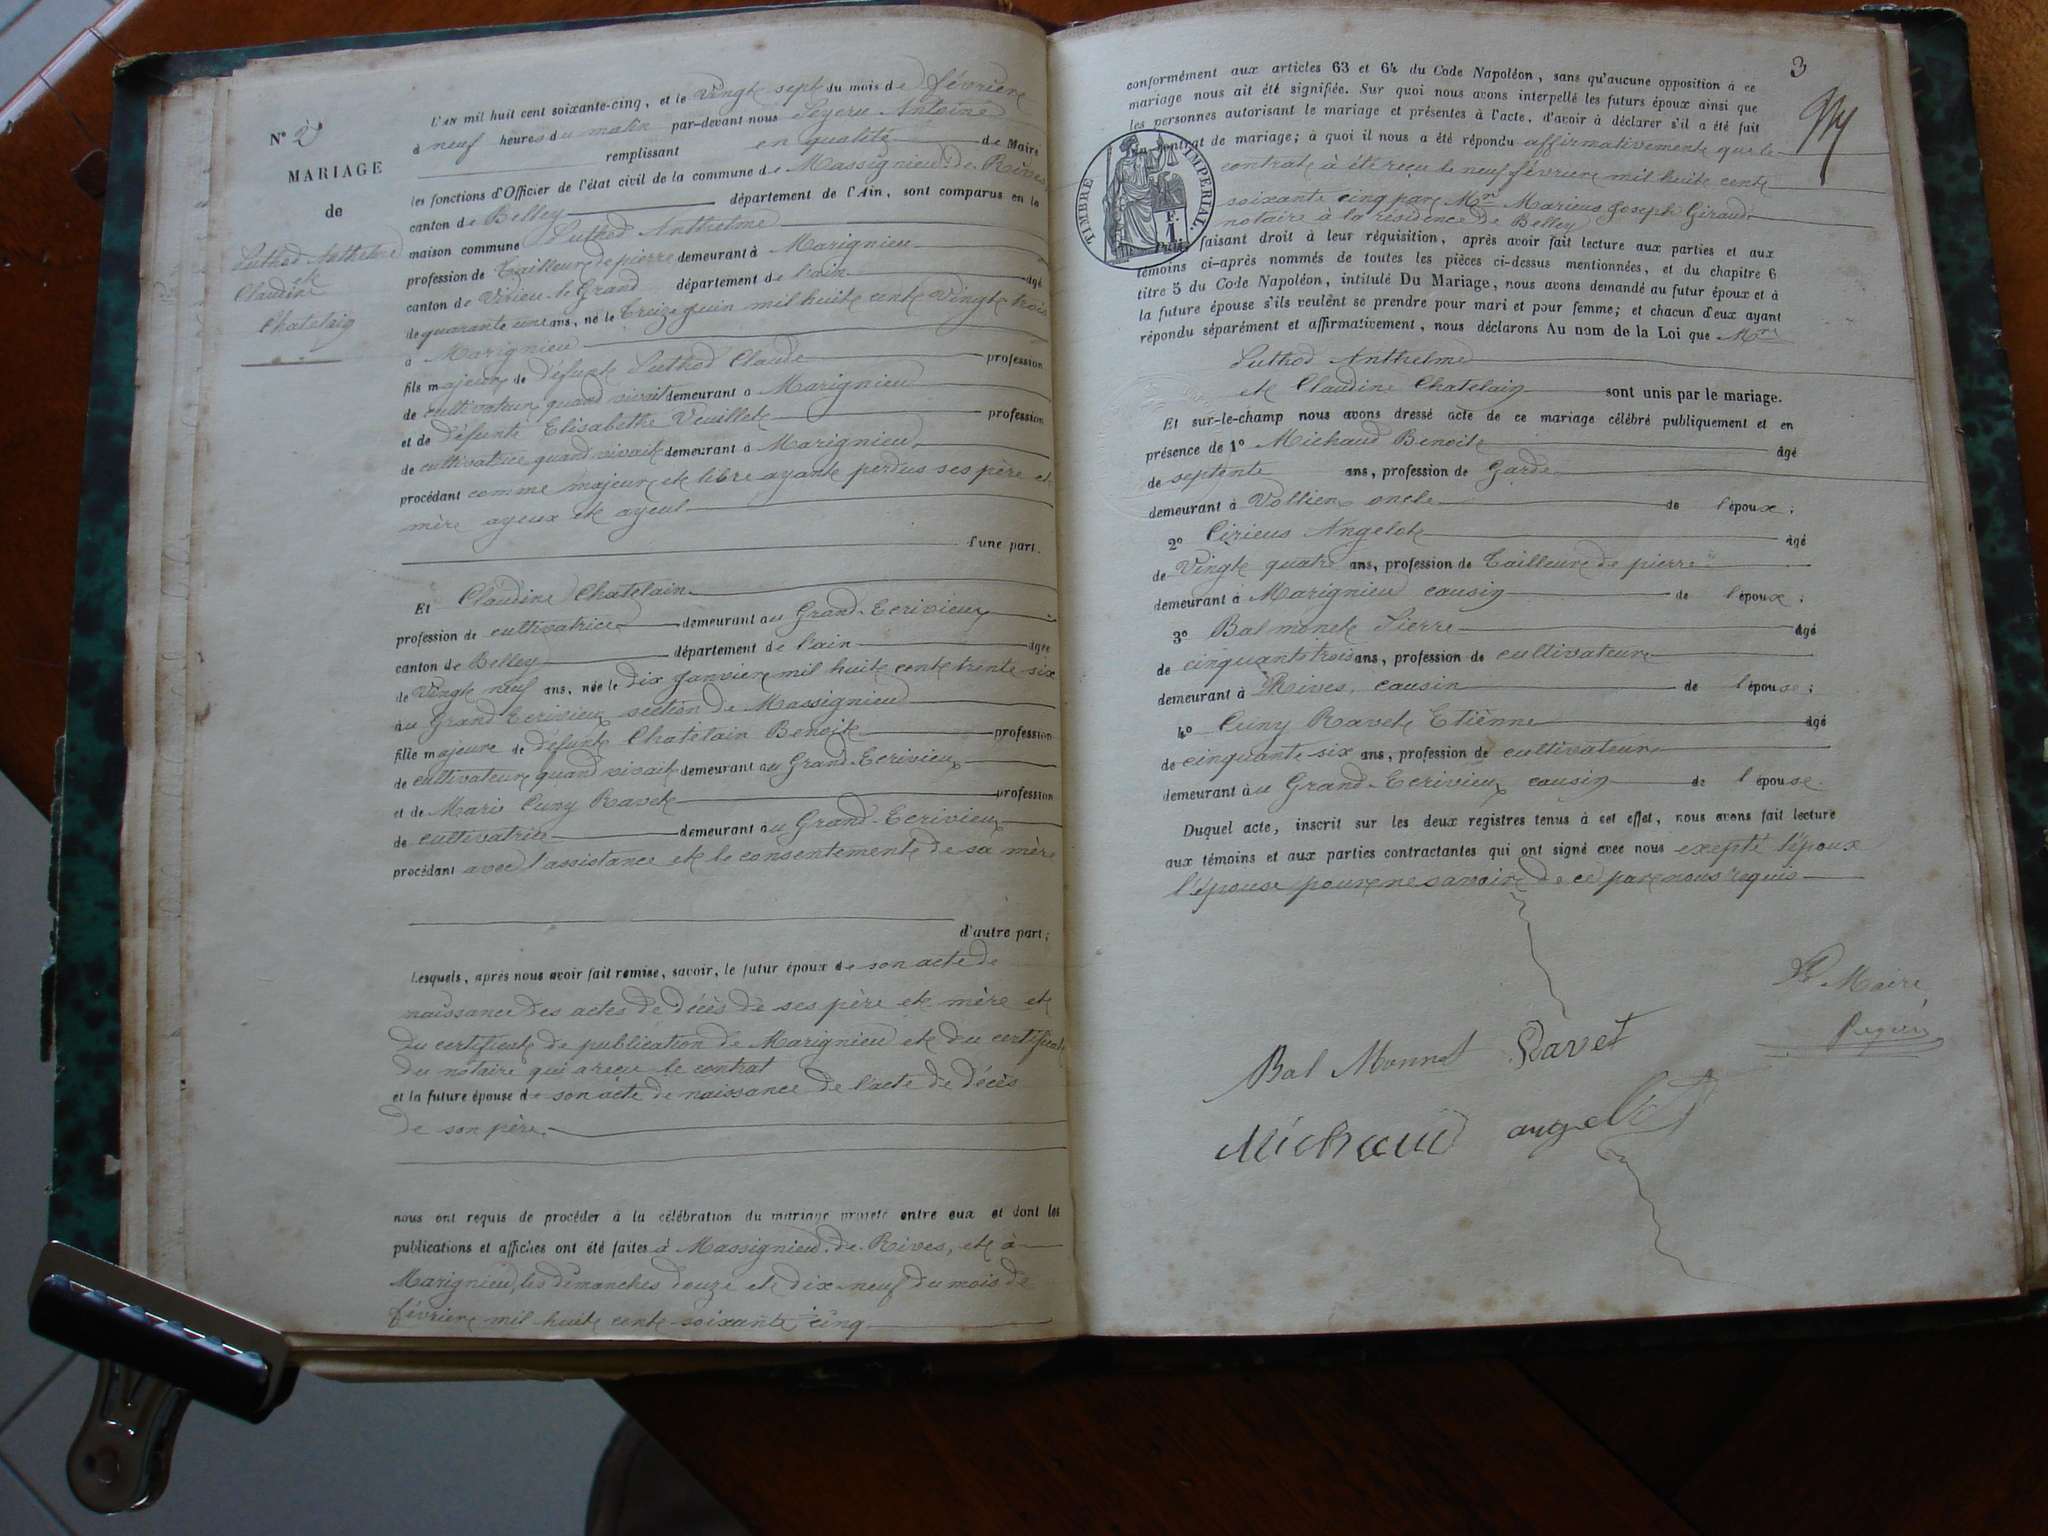 N° 2
MARIAGE
de
Luthod Anthelme
et
Claudine
Chatelain
L'AN mil huit cent soixante-cinq, et le Vingt sept du mois de février
à neuf heures du matin par-devant nous Antoine
remplissant en qualité de Maire
les fonctions d'Officier de l'état civil de la commune de Massignieu-de-Rives
canton de Belley département de l'Ain, sont comparus en la
maison commune Luthod Anthelme
profession de Tailleur de pierre demeurant à Marignieu
canton de Virieu-le-Grand département de l'ain âgé
de quarante une ans, né le Treize Juin mil huit cent vingt trois
à Marignieu
fils majeur de défunt Luthod Claude profession
de cultivateur quand vivait demeurant à Marignieu
et de défunte Elisabethe Veuillet profession
de cultivatrice quand vivait demeurant à Marignieu
procédant comme majeur et libre ayant perdus ses père et
mère ayeux et ayeul
d'une part.
Et Claudine Chatelain
profession de cultivatrice demeurant au Grand-Ecrivieux
canton de Belley département de l'ain âgée
de Vingt neuf ans, née le dix Janvier mil huit cent trente six
au Grand Ecrivieux section de Massignieu
fille majeure de défunt Chatelain Benoit profession
de cultivateur quand vivait demeurant au Grand-Ecrivieux
et de Marie Cuny Ravet profession
de cultivatrice demeurant au Grand-Ecrivieux
procédant avec l'assistance et le consentement de sa mère
d'autre part;
Lesquels, après nous avoir fait remise, savoir, le futur époux de son acte de
naissance des actes de décès de ses père et mère et
du certificat de publication de Marignieu et du certificat
du notaire qui a reçu le contrat
et la future épouse de son acte de naissance de l'acte de décès
de son père.
nous ont requis de procéder à la célébration du mariage projeté entre eux et dont les
publications et affiches ont été faites à Massignieu-de-Rives, et à
Marignieu, les dimanches douze et dix-neuf du mois de
février mil huit cent soixante cinq
3
conformément aux articles 63 et 64 du Code Napoléon, sans qu'aucune opposition à ce
mariage nous ait été signifiée. Sur quoi nous avons interpellé les futurs époux ainsi que
les personnes autorisant le mariage et présentes à l'acte, d'avoir à déclarer s'il a été fait
un contrat de mariage; à quoi il nous a été répondu affirmativement que le
contrat à été reçu le neuf février mil huit cent
soixante cinq par Mr Marius Joseph Giraud
notaire à la résidence de Belley
TIMBRE IMPERIAL
faisant droit à leur réquisition, après avoir fait lecture aux parties et aux
témoins ci-après nommés de toutes les pièces ci-dessus mentionnées, et du chapitre 6
titre 5 du Code Napoléon, intitulé Du Mariage, nous avons demandé au futur époux et à
la future épouse s'ils veulent se prendre pour mari et pour femme; et chacun d'eux ayant
répondu séparément et affirmativement, nous déclarons Au nom de la Loi que Mrs
Luthod Anthelme
et Claudine Chatelain sont unis par le mariage.
Et sur-le-champ nous avons dressé acte de ce mariage célébré publiquement et en
présence de 1° Michaud Benoit âgé
de septente ans, profession de Garde
demeurant à Vollien oncle de l'époux;
2° Cirieus Angelot âgé
de Vingt quatre ans, profession de Tailleur de pierre
demeurant à Marignieu causin de l'époux;
3° Bal monet Pierre âgé
de cinquante trois ans, profession de cultivateur
demeurant à Rives, causin de l'épouse;
4° Cuny Ravet Etiénne âgé
de cinquante six ans, profession de cultivateur
demeurant au Grand-Ecrivieux causin de l'épouse.
Duquel acte, inscrit sur les deux registres tenus à cet effet, nous avons fait lecture
aux témoins et aux parties contractantes qui ont signé avec nous exepté l'époux
l'épouse pour ne savoir de ce par nous requis
Le Maire
Bal Monnet Ravet
Michaud angelot